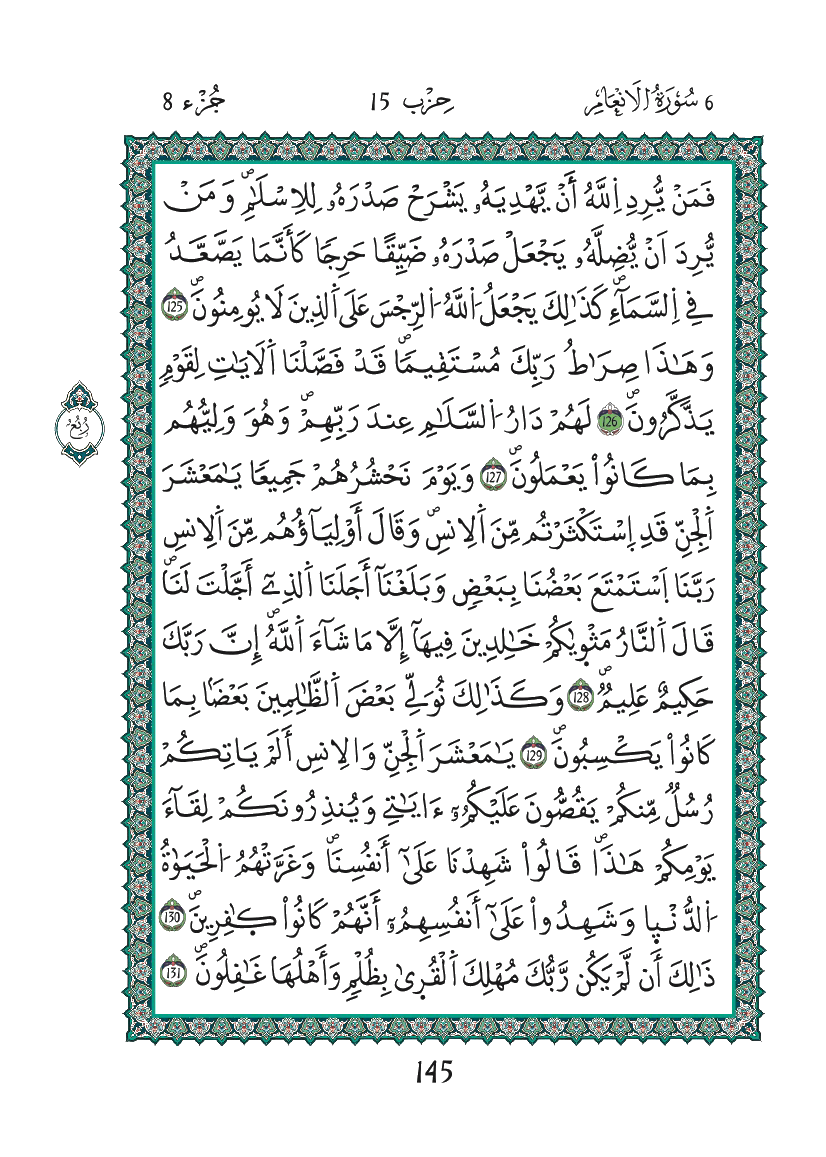 6 سُورَةُ الَانْعَامِ حِزْب 15 جُزْء 8
فَمَنْ يُّرِدِ اِ۬للَّهُ أَنْ يَّهْدِيَهُۥ يَشْرَحْ صَدْرَهُۥ لِلِاسْلَٰمِۖ وَمَنْ
يُّرِدَ اَنْ يُّضِلَّهُۥ يَجْعَلْ صَدْرَهُۥ ضَيِّقًا حَرِجًا كَأَنَّمَا يَصَّعَّدُ
فِے اِ۬لسَّمَآءِۖ كَذَٰلِكَ يَجْعَلُ اُ۬للَّهُ اُ۬لرِّجْسَ عَلَى اَ۬لذِينَ لَا يُومِنُونَۖ 125
وَهَٰذَا صِرَٰطُ رَبِّكَ مُسْتَقِيمًاۖ قَدْ فَصَّلْنَا اَ۬لَايَٰتِ لِقَوْمٍ
رُبُع
يَذَّكَّرُونَۖ 126 لَهُمْ دَارُ اُ۬لسَّلَٰمِ عِندَ رَبِّهِمْۖ وَهُوَ وَلِيُّهُم
بِمَا كَانُواْ يَعْمَلُونَۖ 127 وَيَوْمَ نَحْشُرُهُمْ جَمِيعًا يَٰمَعْشَرَ
اَ۬لْجِنِّ قَدِ اِ۪سْتَكْثَرْتُم مِّنَ اَ۬لِانسِۖ وَقَالَ أَوْلِيَآؤُهُم مِّنَ اَ۬لِانسِ
رَبَّنَا اَ۪سْتَمْتَعَ بَعْضُنَا بِبَعْضٍ وَبَلَغْنَآ أَجَلَنَا اَ۬لذِےٓ أَجَّلْتَ لَنَاۖ
قَالَ اَ۬لنَّارُ مَثْو۪يٰكُمْ خَٰلِدِينَ فِيهَآ إِلَّا مَا شَآءَ اَ۬للَّهُۖ إِنَّ رَبَّكَ
حَكِيمٌ عَلِيمٌۖ 128 وَكَذَٰلِكَ نُوَلِّے بَعْضَ اَ۬لظَّٰلِمِينَ بَعْضَۢا بِمَا
كَانُواْ يَكْسِبُونَۖ 129 يَٰمَعْشَرَ اَ۬لْجِنِّ وَالِانسِ أَلَمْ يَاتِكُمْ
رُسُلٌ مِّنكُمْ يَقُصُّونَ عَلَيْكُمُۥٓ ءَايَٰتِے وَيُنذِرُونَكُمْ لِقَآءَ
يَوْمِكُمْ هَٰذَاۖ قَالُواْ شَهِدْنَا عَلَىٰٓ أَنفُسِنَاۖ وَغَرَّتْهُمُ اُ۬لْحَيَوٰةُ
اُ۬لدُّنْي۪ا وَشَهِدُواْ عَلَىٰٓ أَنفُسِهِمُۥٓ أَنَّهُمْ كَانُواْ كٰ۪فِرِينَۖ 130
ذَٰلِكَ أَن لَّمْ يَكُن رَّبُّكَ مُهْلِكَ اَ۬لْقُر۪يٰ بِظُلْمٍ وَأَهْلُهَا غَٰفِلُونَۖ 131
145